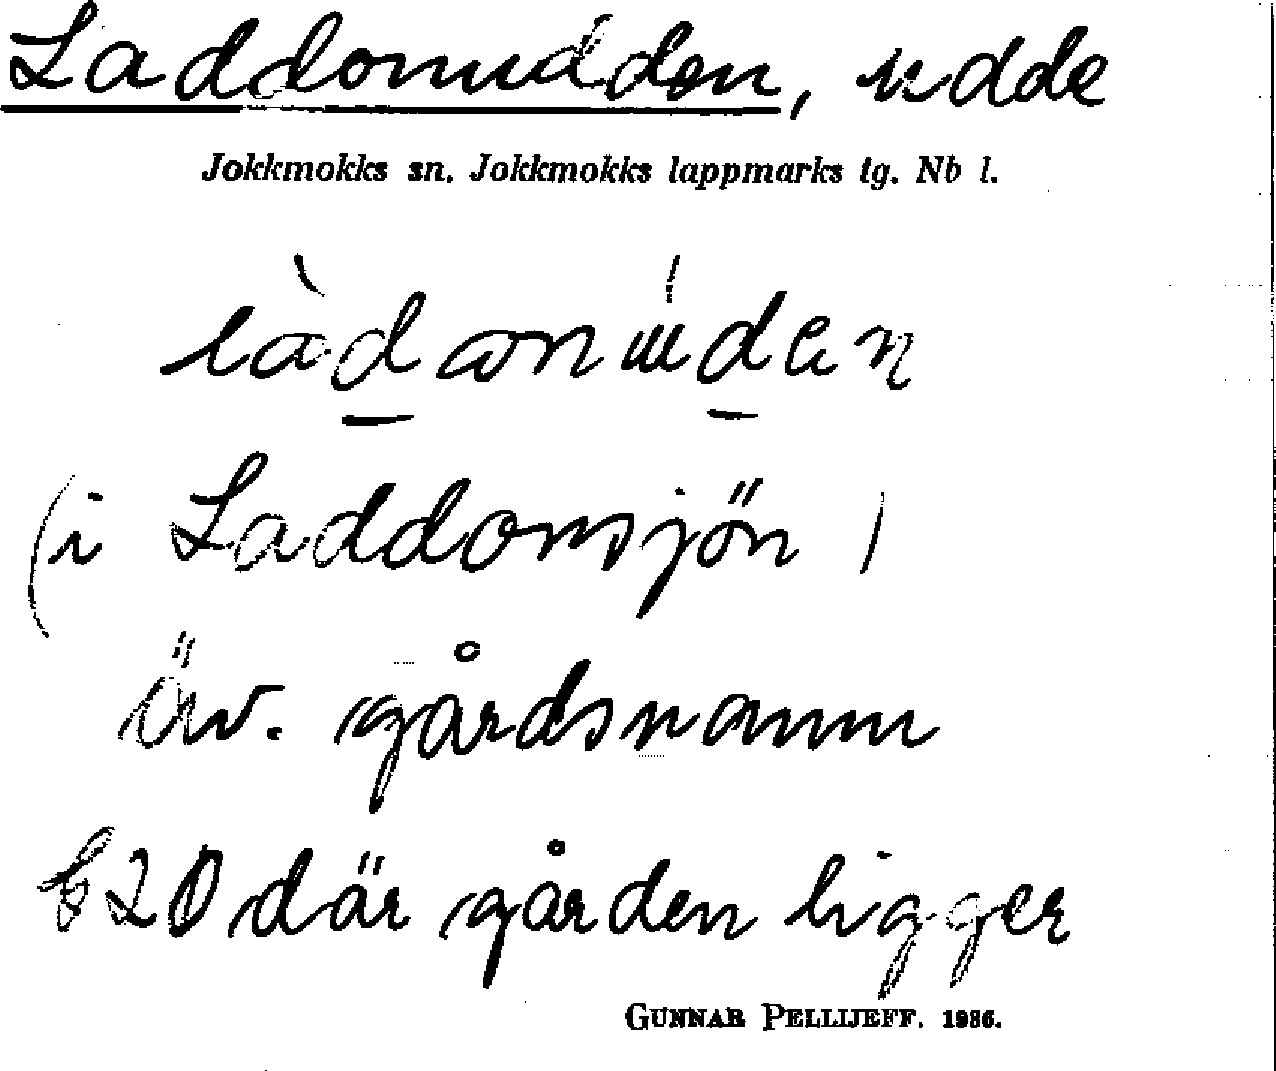 Laddonudden, udde
Jokkmokks sn. Jokkmokks lappmarks tg. Nb l.
(i Laddonsjön)
äv. gårdsnamn
där gården ligger
GUNNAR PELLIJEFF. 1936.